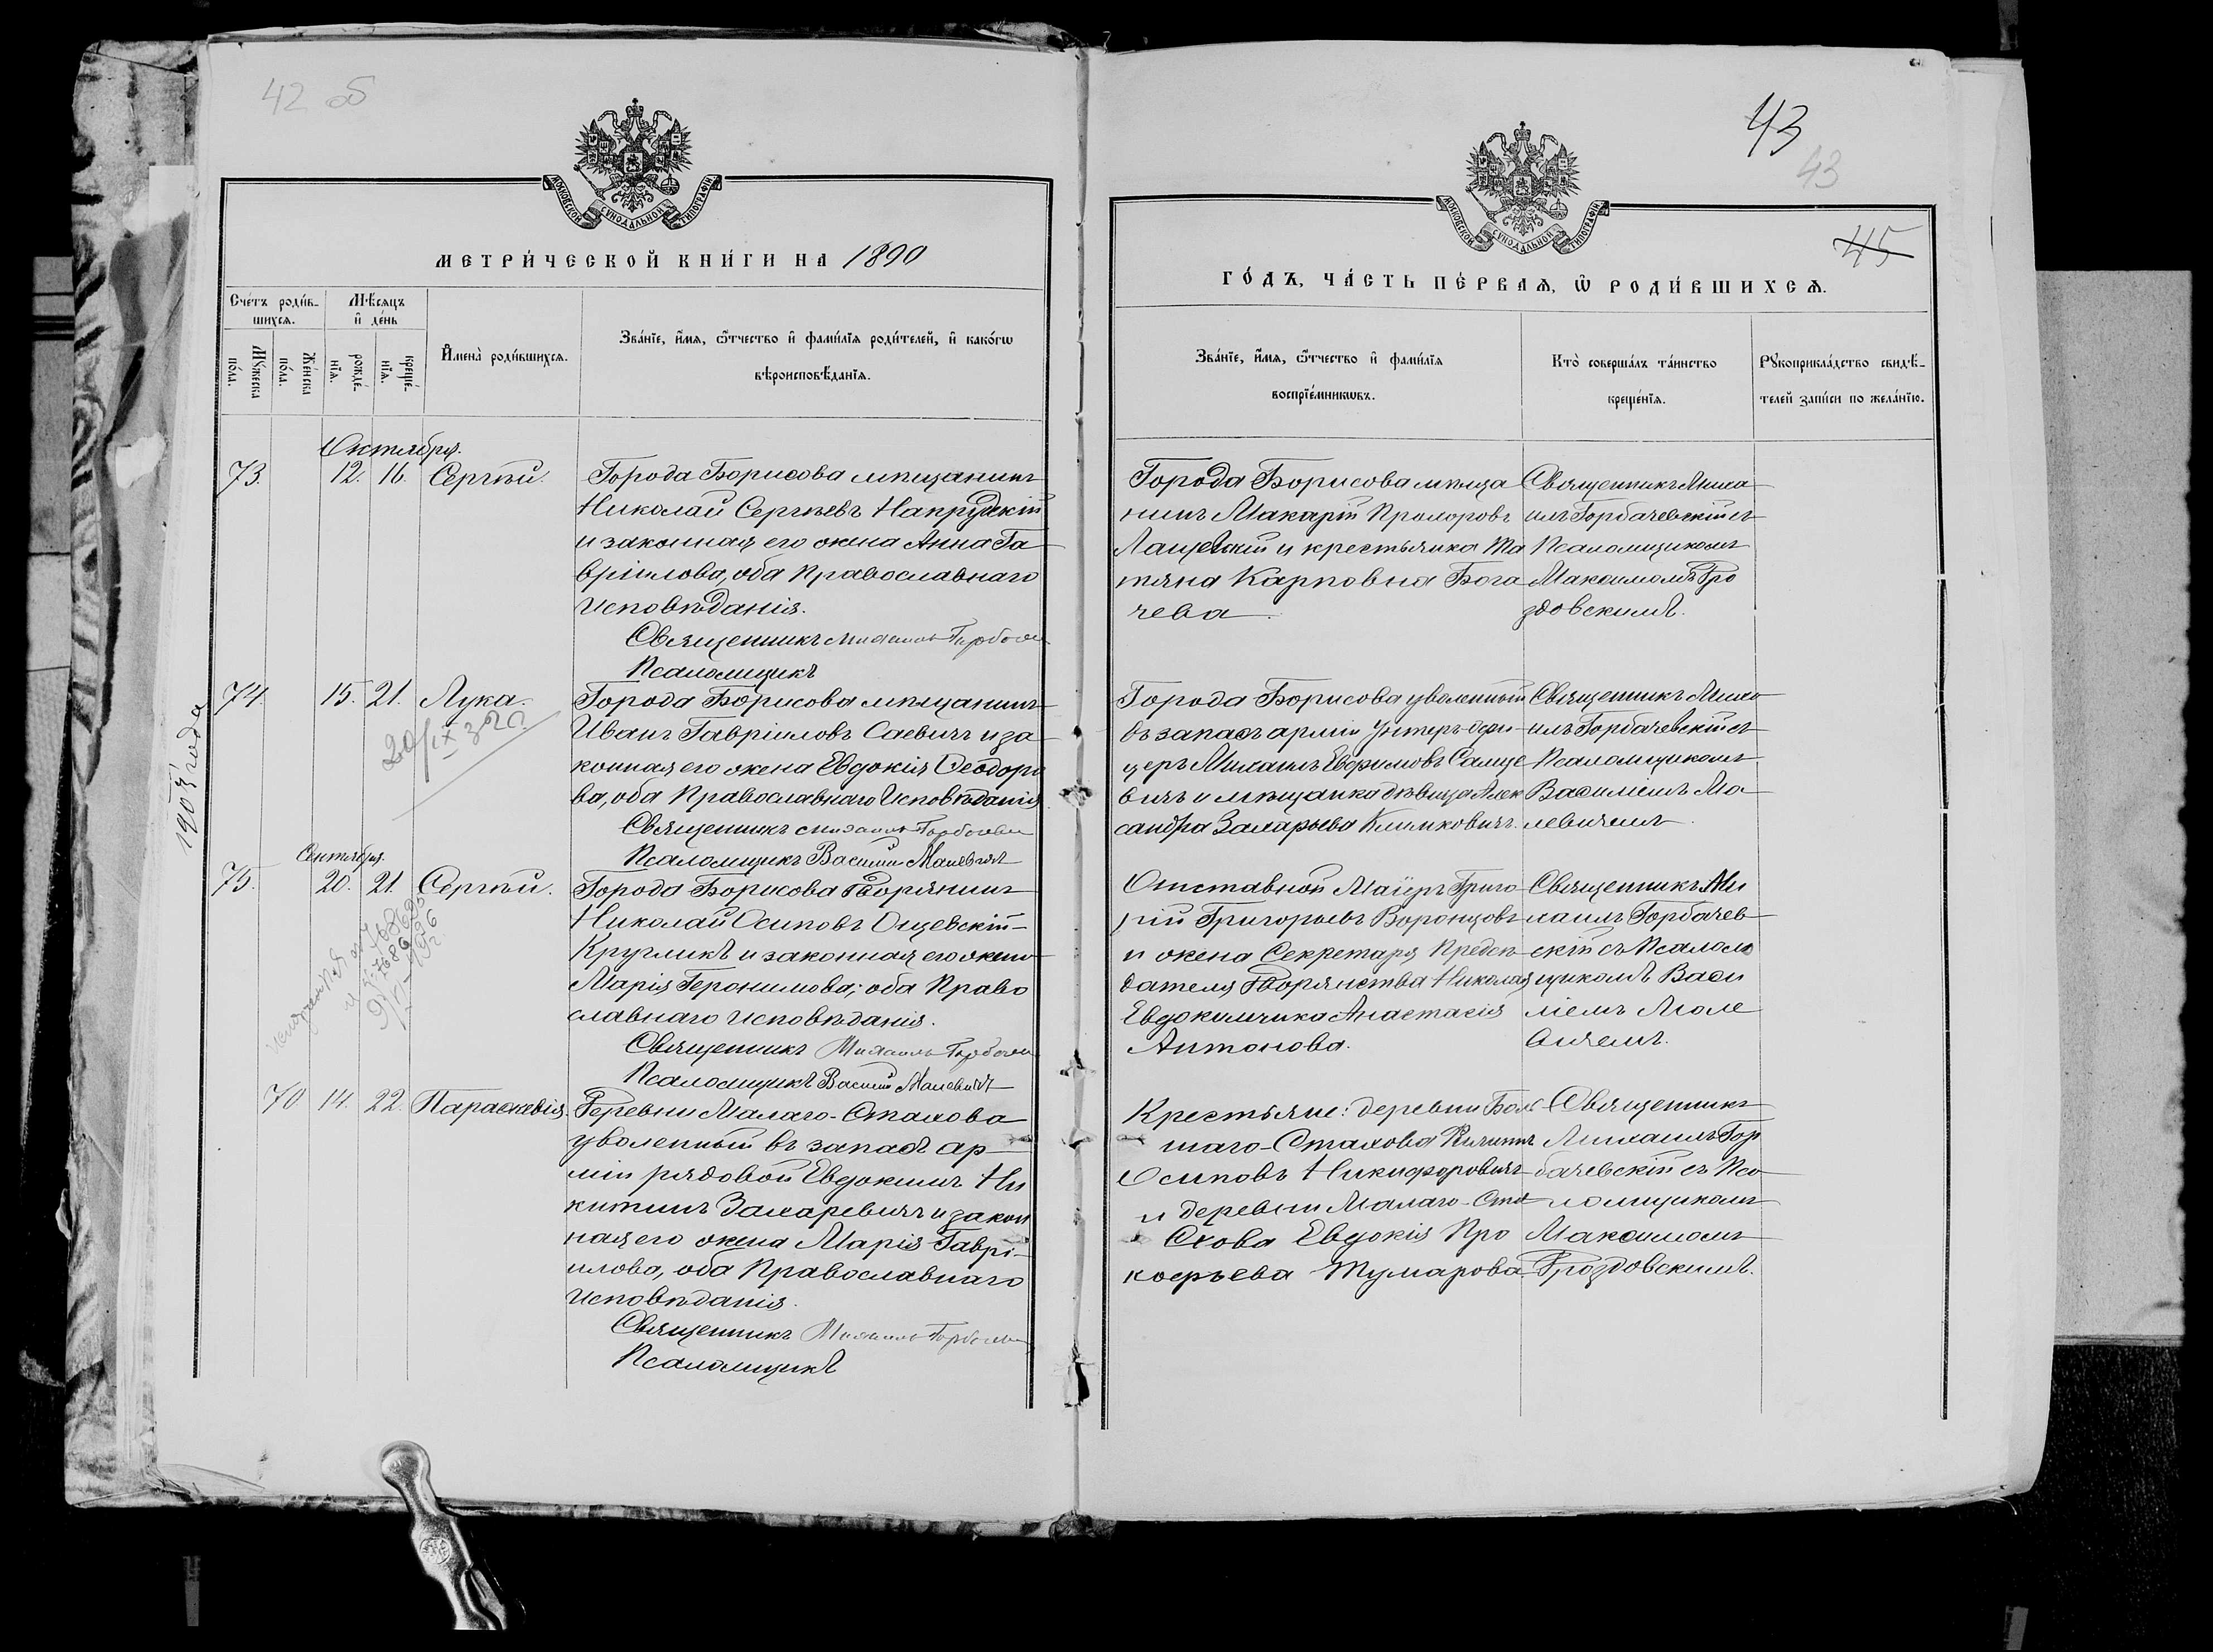 42 об
МОСКОВСКОЙ СѴНОДАЛЬНОЙ ТИПОГРАФІИ
МЕТРИ́ЧЕСКОЙ КНИ́ГИ НА 1890
Сче́тъ роди́в-
шихсѧ.
Мѣ́сяцъ
и҆ де́нь
Мꙋжеска
по́ла.
Же́нска
по́ла.
рожде́-
нїѧ.
креще́-
нїѧ.
И҆мена̀ роди́вшихсѧ.
Зва́нїе, и҆́мѧ, ѻ҆́тчество и҆ фами́лїѧ роди́телей, и҆ како́гѡ
вѣроисповѣ́данїѧ.
Октября.
73. 12. 16. Сергѣй.
Города Борисова мѣщанинъ
Николай Сергѣевъ Напрудкій
и законная его жена Анна Га
вріилова, оба Православнаго
Исповѣданія.
Священникъ Михаилъ Горбачев
Псаломщикъ
74. 15. 21. Лука.
20/IX 32 г.
Города Борисова мѣщанинъ
Иванъ Гавріиловъ Саевичъ и за
конная его жена Евдокія Ѳеодоро
ва, оба Православнаго Исповѣданія
Священникъ Михаилъ Горбачев
Псаломщикъ Василій Малевичъ
1903 года
Сентября.
75. 20. 21. Сергѣй.
Города Борисова Дворянинъ
Николай Осиповъ Ощевскій-
Кругликъ и законная его жена
Марія Геронимова; оба Право
славнаго Исповѣданія.
Священникъ Михаилъ Горбачев
Псаломщикъ Василій Малевичъ
70. 14. 22. Параскевія.
Деревни Малаго-Стахова
уволенный въ запасъ ар
міи рядовой Евдокимъ Ни
китинъ Захаревичъ и закон
ная его жена Марія Гаврі-
илова, оба Православнаго
Исповѣданія.
Священникъ Михаилъ Горбачев
Псаломщикъ
43
43
45
МОСКОВСКОЙ СѴНОДАЛЬНОЙ ТИПОГРАФІИ
ГО́ДЪ, ЧА́СТЬ ПЕ́РВАѦ, Ѡ҆ РОДИ́ВШИХСѦ.
Зва́нїе, и҆́мѧ, ѻ҆́тчество и҆ фами́лїѧ
воспрїе́мникѡвъ.
Кто̀ соверша́лъ та́инство
креще́нїѧ.
Рꙋкоприкла́дство свидѣ́-
телей за́писи по жела́нїю.
Города Борисова мѣща
нинъ Макарій Прохоровъ
Лащевскій и крестьянка Та
тяна Карповна Бога
чева.
Священникъ Миха
илъ Горбачевскій съ
Псаломщикомъ
Максимомъ Гро
здовскимъ.
Города Борисова уволенный
въ запасъ арміи Унтеръ-офи
церъ Михаилъ Евфимовъ Самце
вичъ и мѣщанка дѣвица Алек
сандра Захарьева Климковичъ.
Священникъ Миха
илъ Горбачевскій съ
Псаломщикомъ
Василіемъ Ма
левичемъ.
Отставной Маіоръ Григо
рій Григорьевъ Воронцовъ
и жена Секретаря Предсѣ
дателя Дворянства Николая
Евдокимчика Анастасія
Антонова.
Священникъ Ми
хаилъ Горбачев
скій съ Псалом
щикомъ Васи
ліемъ Мале
вичемъ.
Крестьяне: деревни Боль
шаго-Стахова Филиппъ
Осиповъ Никифоровичъ
и деревни Малаго-Ста
хова Евдокія Про
кофьева Тумарова.
Священникъ
Михаилъ Гор
бачевскій съ Пса
ломщикомъ
Максимомъ
Гроздовскимъ.